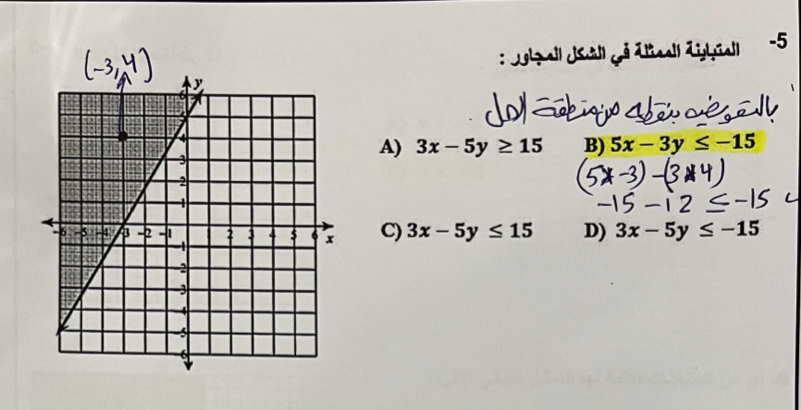 5- المتباينة الممثلة في الشكل المجاور :
(-3,4)
بالتعويض بنقطه من منطقة الحل .
A) 3x – 5y ≥ 15 B) 5x – 3y ≤ –15
(5x-3)-(3x4)
-15-12 ≤ -15
C) 3x – 5y ≤ 15 D) 3x – 5y ≤ –15
y
6
4
3
2
1
-6 -5 -4 -3 -2 -1 1 2 3 4 5 6 x
-1
-2
-3
-4
-5
-6